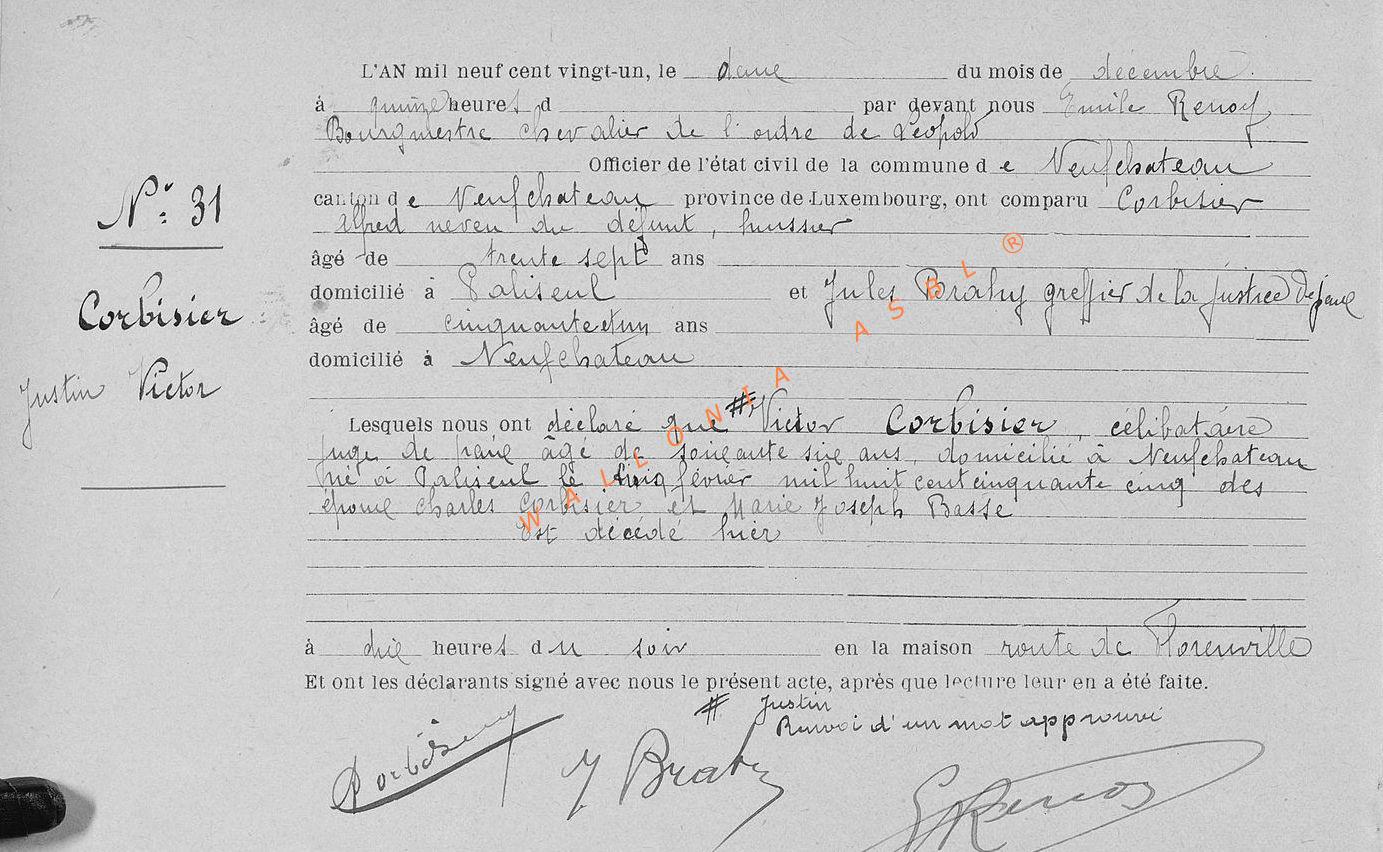 L'AN mil neuf cent vingt-un, le douze du mois de décembre.
à quinze heures d par devant nous Emile Renoy
Bourgmestre chevalier de l'ordre de Léopold
Officier de l'état civil de la commune de Neufchateau
canton de Neufchateau province de Luxembourg, ont comparu Corbisier
Alfred neveu du défunt, huissier
âgé de trente sept ans
domicilié à Paliseul et Jules Brahy greffier de la justice de paix
âgé de cinquante et un ans
domicilié à Neufchateau
N° 31
Corbisier
Justin Victor
Lesquels nous ont déclaré que # Victor Corbisier, célibataire
juge de paix âgé de soixante six ans, domicilié à Neufchateau
né à Paliseul le février mil huit cent cinquante cinq des
époux Charles Corbisier et Marie Joseph Basse
Est décédé hier
à dix heures du soir en la maison route de Florenville
Et ont les déclarants signé avec nous le présent acte, après que lecture leur en a été faite.
# Justin
Renvoi d'un mot approuvé
Corbisier
J Brahy
E Renoy
WALLONIA ASBL ®